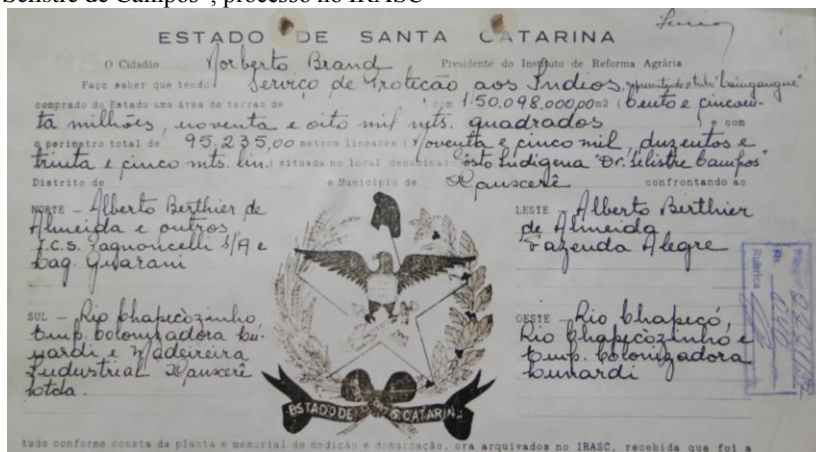 Selistre de Campos", processo no IRASC
ESTADO DE SANTA CATARINA
O Cidadão Norberto Brand Presidente do Instituto de Reforma Agrária
Faço saber que tendo Serviço de Proteção aos Índios,
comprado do Estado uma área de terras de com 150.098.000,00m2 (Cento e cincoen-
ta milhões, noventa e oito mil mts. quadrados) e com
o perímetro total de 95.235,00 metros lineares (Noventa e cinco mil, duzentos e
trinta e cinco mts. lin.) situada no local denominado Posto Indígena "Dr. Selistre Campos"
Distrito de e Município de Xanxerê confrontando ao
NORTE - Alberto Berthier de
Almeida e outros
I.C.S. Pagnoncelli S/A e
Guarani
LESTE - Alberto Berthier
de Almeida
Fazenda Alegre
SUL - Rio Chapecòzinho
Emp. Colonizadora Cu-
nardi, e Madeireira
Industrial Xanxerê
Ltda.
OESTE - Rio Chapecó,
Rio Chapecòzinho e
Emp. Colonizadora
Cunardi
Rubrica
ESTADO DE STA. CATARINA
tudo conforme consta da planta e memorial de medição e demarcação, ora arquivados no IRASC, recebida que foi a